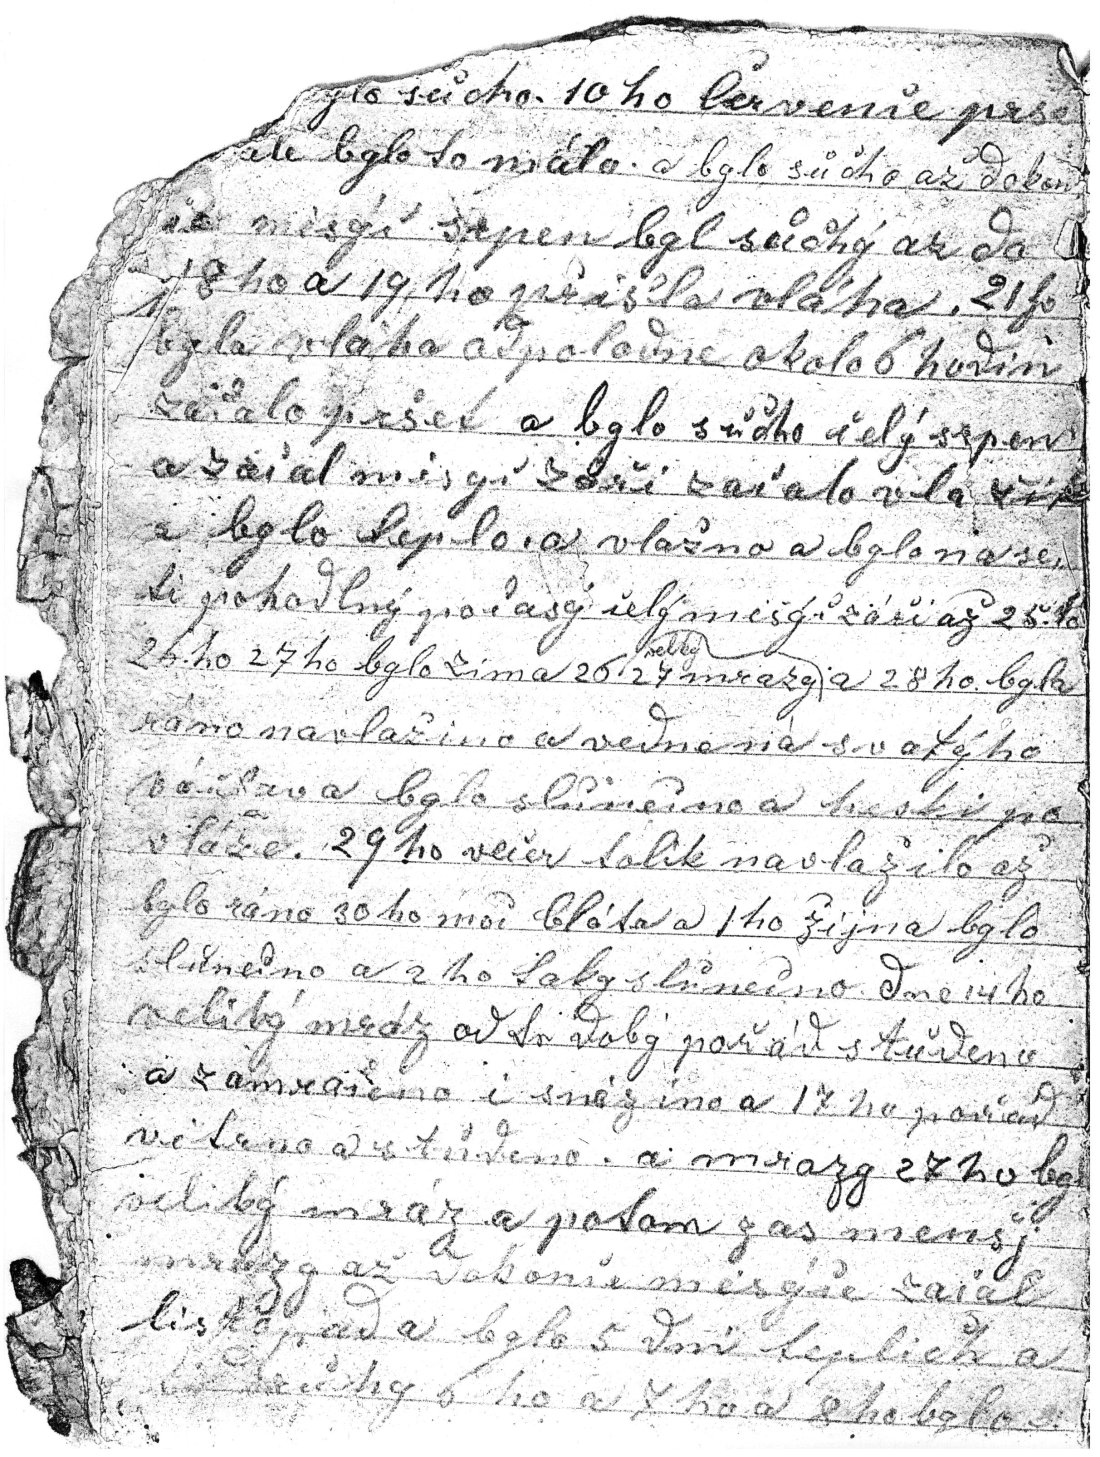 bylo sůcho. 10 ho Červenče prše
ale bylo to málo. a bylo sůcho až dokon
če misýi srpen byl sůchý až do
18 ho a 19 ho přišla vláha. 21 ho
byla vláha odpoledne okolo 6 hodin
začalo pršet a bylo sůcho čelý srpen
a začal misýi září začalo vla
a bylo teplo. a vlažno a bylo na se
ti pohodlný počasý čelý misýi září až 25. ho
26. ho 27 ho bylo zima 26. 27 velký mrazy a 28 ho. byla
ráno navlažino a vedne na svatýho
váčlava bylo slůnečno a heski po
vláže. 29 ho večer tolik navlažilo až
bylo ráno 30 ho moč bláta a 1 ho řijna bylo
slůnečno a 2 ho taky slůnečno. Dne 14 ho
velitký mráz od té doby pořád stůdeno
a zamračeno i sněžino a 17 ho pořád
větrno a stůdeno. a mrazy 27 ho byl
velitký mráz a potom zas menšj
mrazy až dokonče misýče začal
listopad a bylo 5 dní teplich a
sůchy 6 ho a 7 ho a 8 ho bylo